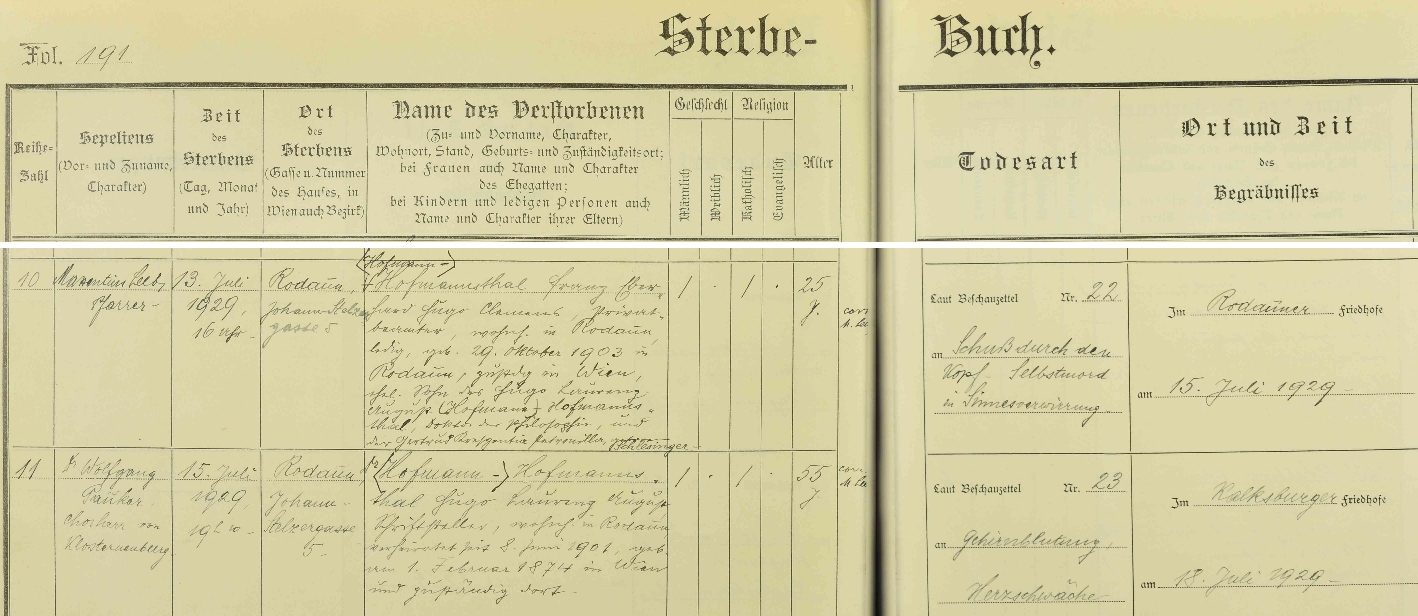 Fol. 191
Sterbe-
Buch.
Reihe-
Zahl
Sepeliens
(Vor- und Zuname,
Charakter)
Zeit
des
Sterbens
(Tag, Monat
und Jahr)
Ort
des
Sterbens
(Gasse u. Nummer
des Hauses, in
Wien auch Bezirk)
Name des Verstorbenen
(Zu- und Vorname, Charakter,
Wohnort, Stand, Geburts- und Zuständigkeitsort;
bei Frauen auch Name und Charakter
des Ehegatten;
bei Kindern und ledigen Personen auch
Name und Charakter ihrer Eltern)
Geschlecht
Männlich
Weiblich
Religion
Katholisch
Evangelisch
Alter
Todesart
Ort und Zeit
des
Begräbnisses
10
Pfarrer
13. Juli
1929,
16 Uhr
Rodaun,
Johann Stelzer-
gasse 5
(Hofmann-)
Hofmannsthal Franz Eber-
hard Hugo Clemens, Privat-
beamter, wohnh. in Rodaun,
ledig, geb. 29. Oktober 1903 in
Rodaun, zustdg in Wien,
ehel. Sohn des Hugo Laurenz
August (Hofmann-) Hofmanns-
thal, Doktor der Philosophie, und
der Gertrud Konstantia Petronilla, Schlesinger
/ · / ·
25
J.
Laut Beschauzettel Nr. 22
an Schuß durch den
Kopf - Selbstmord
in Sinnesverwirrung
Im Rodauner Friedhofe
am 15. Juli 1929
11
Dr Wolfgang
Pauker
Chorherr von
Klosterneuburg
15. Juli
1929
19h
Rodaun,
Johann-
Stelzergasse
5.
Dr (Hofmann-) Hofmanns-
thal Hugo Laurenz August
Schriftsteller, wohnh in Rodaun
verheiratet seit 8. Juni 1901, geb.
am 1. Februar 1874 in Wien
und zuständig dort
/ · / ·
55
J
Laut Beschauzettel Nr. 23
an Gehirnblutung,
Herzschwäche
Im Kalksburger Friedhofe
am 18. Juli 1929